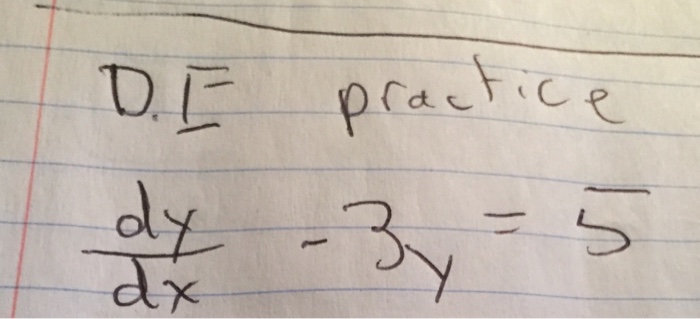 D.E practice
dy/dx - 3y = 5